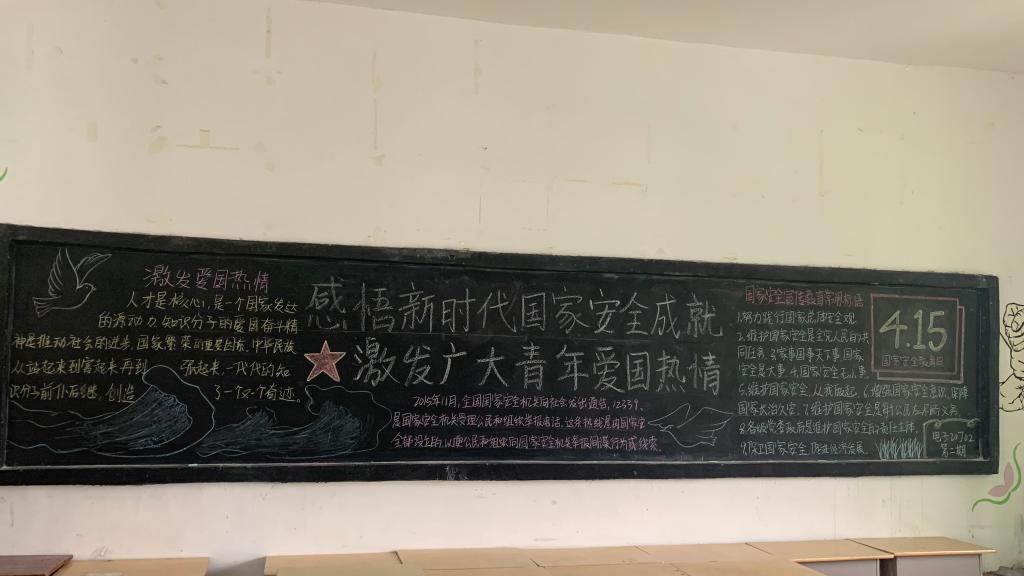 激发爱国热情
人才是核心,是一个国家发达
的源动力.知识分子的爱国奋斗精
神是推动社会的进步,国家繁荣的重要因素.中华民族
从站起来到富起来再到 强起来.一代代的知
识分子前仆后继,创造 了一个又一个奇迹.
感悟新时代国家安全成就
激发广大青年爱国热情
2015年11月,全国国家安全机关向社会发出通告,12339,
是国家安全机关受理公民和组织举报电话,这条热线是由国家安
全部设立的,以便公民和组织向国家安全机关举报间谍行为或线索.
国家安全宣传教育年度标语
1.努力践行国家总体安全观.
2.维护国家安全是全元人民的共
同任务 3.家事国事天下事 国家
安全是大事 4.国家安全无小事
5.维护国家安全,从我做起. 6.增强国家安全意识,保障
国家长治久安. 7.维护国家安全是每个公民应尽的义务
8.各级党委政府是维护国家安全的责任主体.
9.保卫国家安全 促进经济发展.
4.15
国家安全教育日
电子20702
第二期